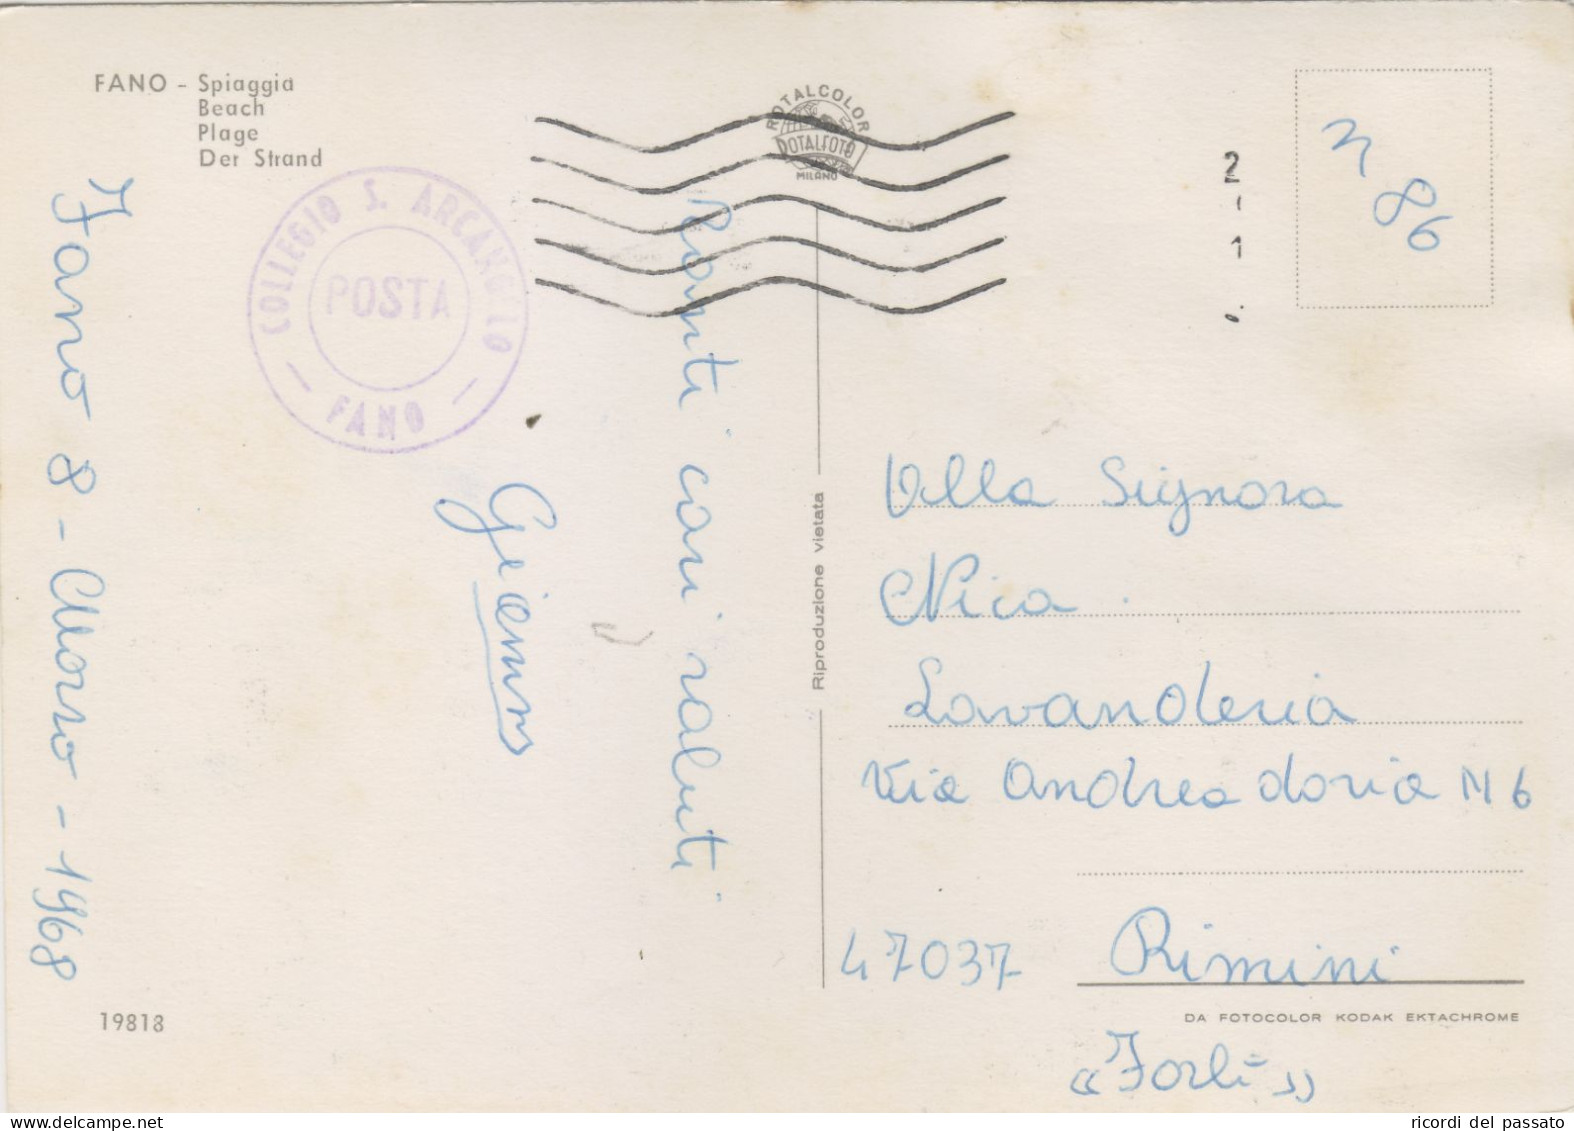 FANO - Spiaggia
Beach
Plage
Der Strand
COLLEGIO S. ARCANGELO
POSTA
- FANO -
ROTALCOLOR
ROTALFOTO
MILANO
2
1
N 86
Fano 8 - Marzo - 1968
Tanti cari saluti
Gianni
Riproduzione vietata
Alla Signora
Nica
Lavanderia
Via Andrea doria N 6
47037 Rimini
DA FOTOCOLOR KODAK EKTACHROME
«Forlì»
19818
ricordi del passato